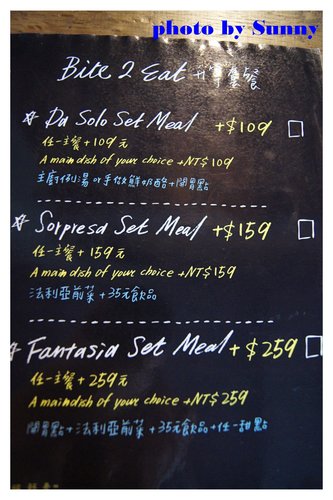 photo by Sunny
Bite 2 Eat 升等餐
Da Solo Set Meal +$109
任一主餐+109元
A main dish of your choice +NT$109
主廚例湯 or 手做鮮奶酪+開胃點
Sorpresa Set Meal +$159
任一主餐+159元
A main dish of your choice +NT$159
法利亞前菜+35元飲品
Fantasia Set Meal +$259
任一主餐+259元
A main dish of your choice +NT$259
開胃點+法利亞前菜+35元飲品+任一甜點